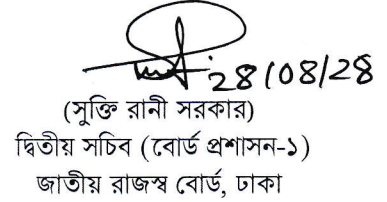 ২৪/০৪/২৪
(সুক্তি রানী সরকার)
দ্বিতীয় সচিব (বোর্ড প্রশাসন-১)
জাতীয় রাজস্ব বোর্ড, ঢাকা